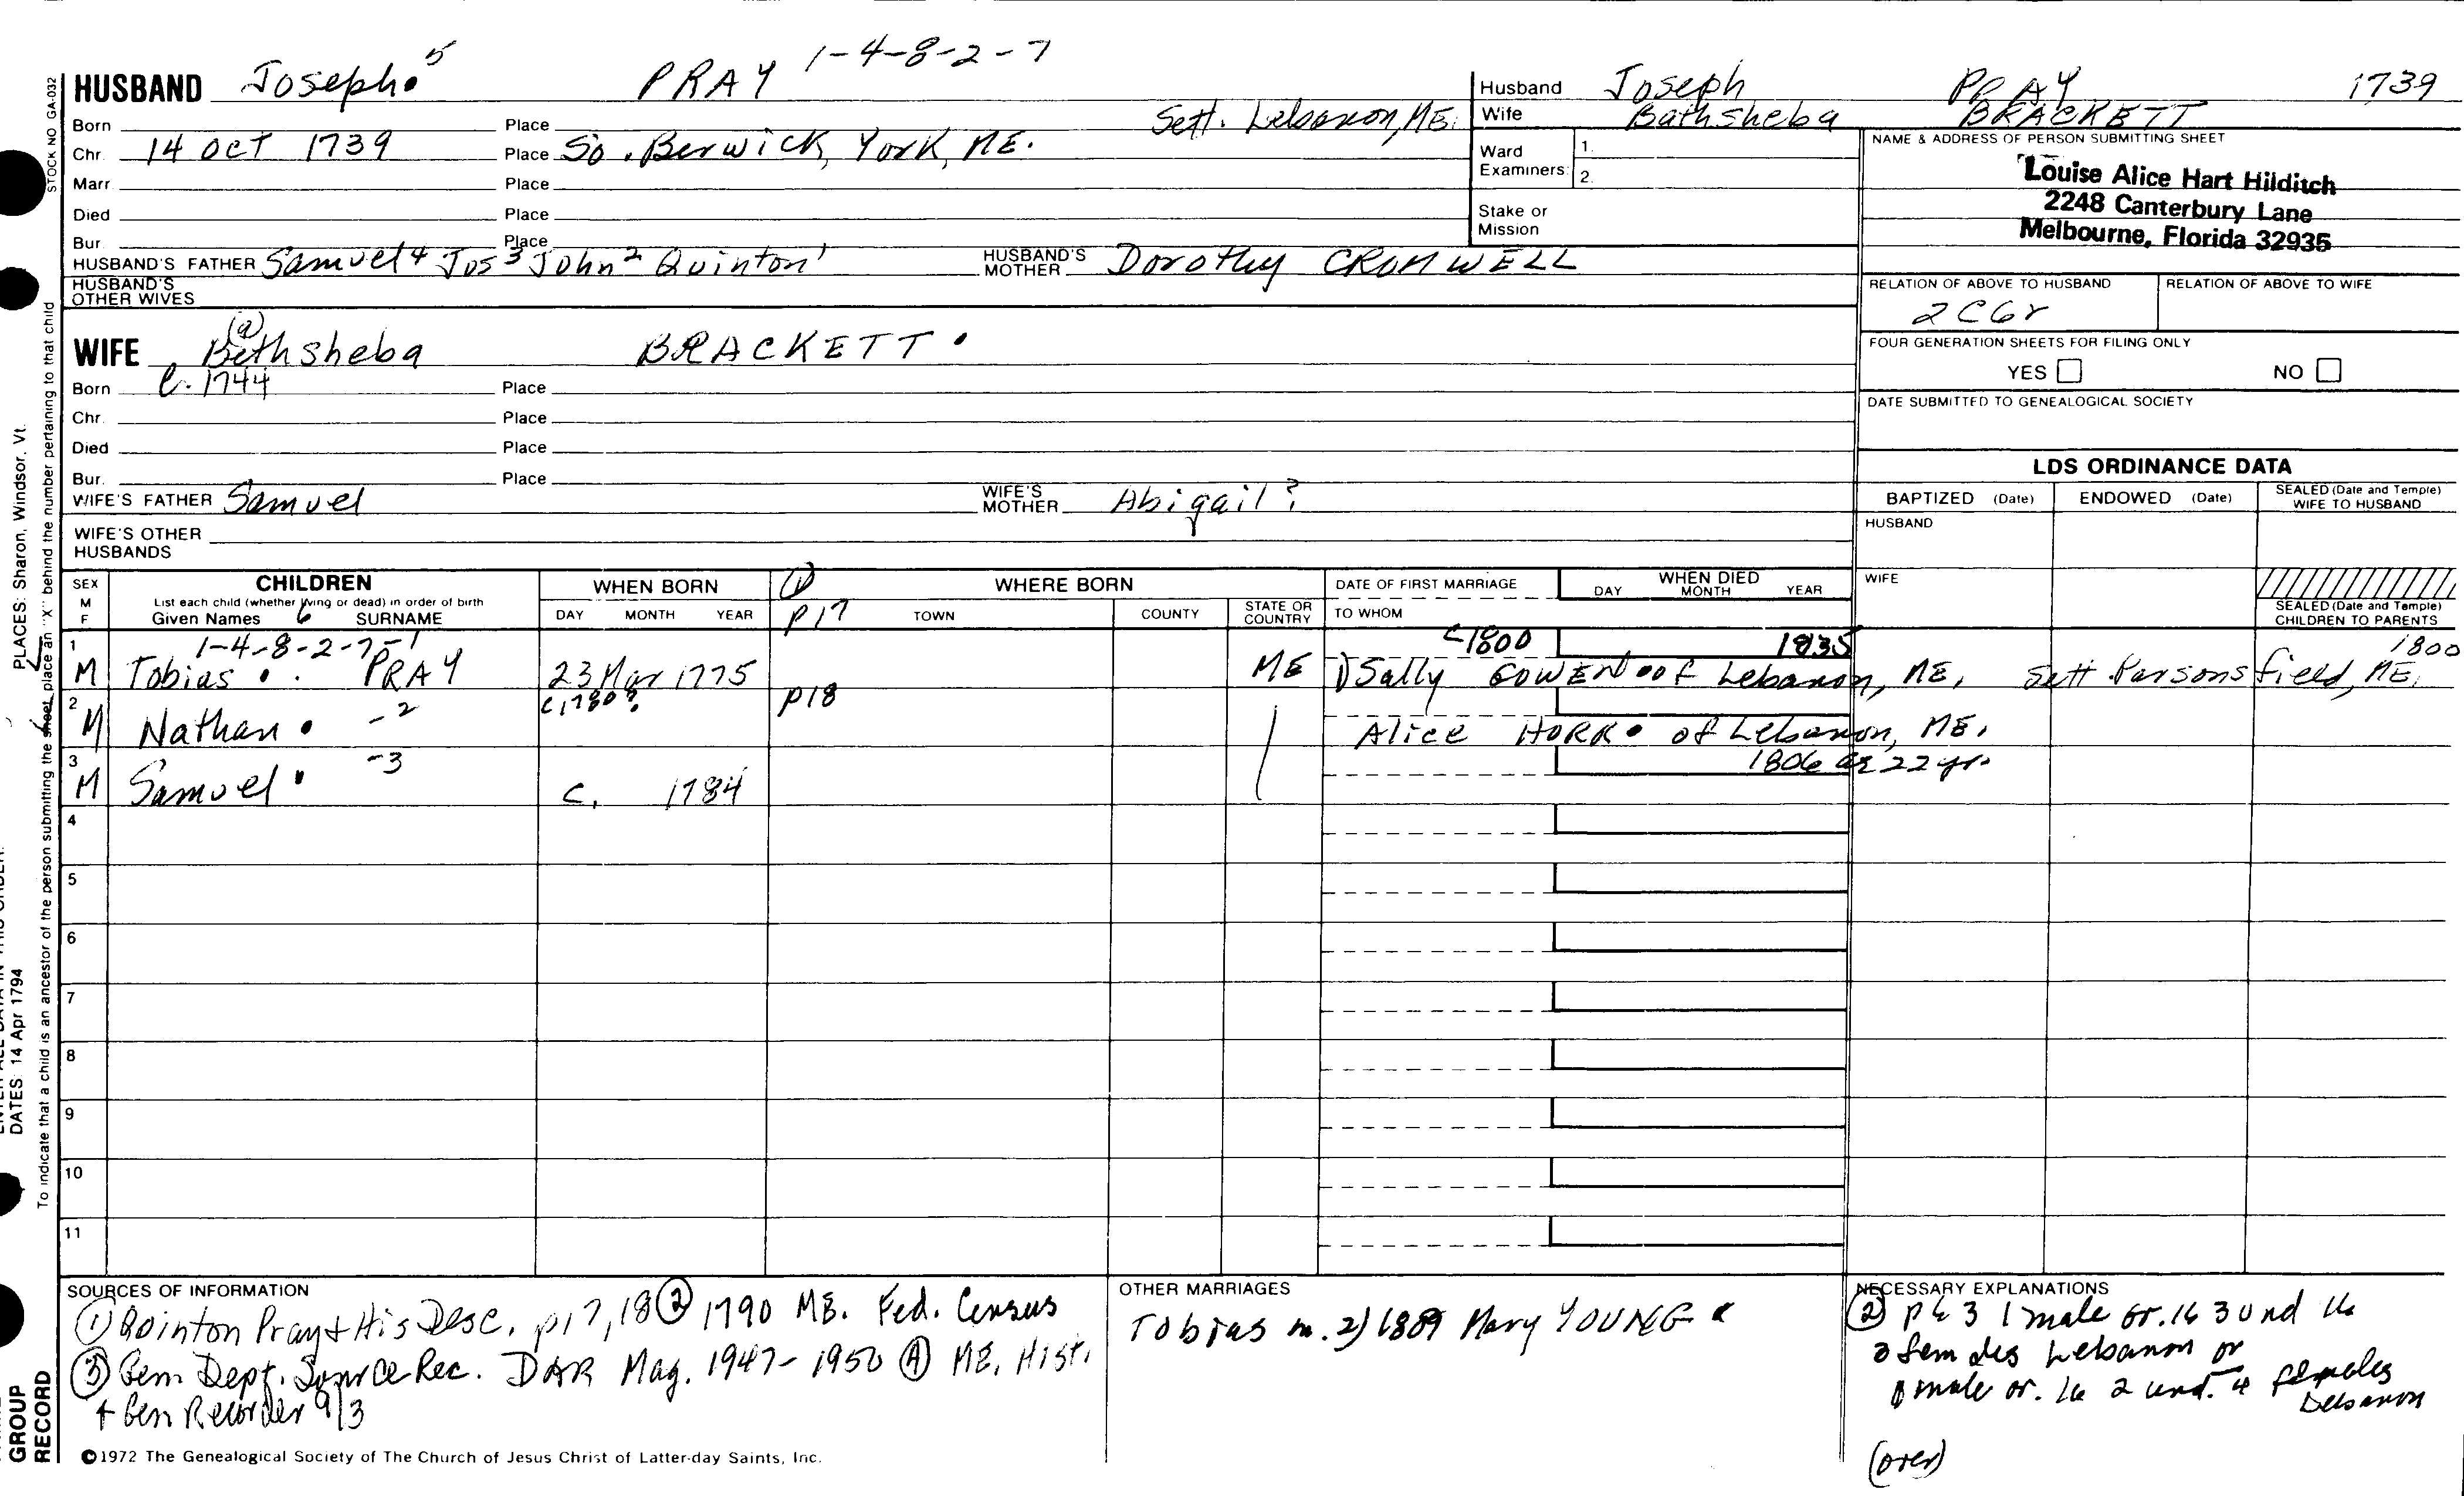 1-4-8-2-7
HUSBAND Joseph 5 PRAY
Husband Joseph PRAY 1739
Wife Bathsheba BRACKETT
Born Place Sett. Lebanon, ME.
Chr. 14 OCT 1739 Place So. Berwick, York, ME.
Marr. Place
Died Place
Bur. Place
Ward Examiners: 1. 2.
Stake or Mission
NAME & ADDRESS OF PERSON SUBMITTING SHEET
Louise Alice Hart Hilditch
2248 Canterbury Lane
Melbourne, Florida 32935
HUSBAND'S FATHER Samuel 4 Jos 3 John 2 Quinton 1 HUSBAND'S MOTHER Dorothy CROMWELL
HUSBAND'S OTHER WIVES
RELATION OF ABOVE TO HUSBAND RELATION OF ABOVE TO WIFE
2C6r
(a)
WIFE Bethsheba BRACKETT
FOUR GENERATION SHEETS FOR FILING ONLY
YES NO
Born c. 1744 Place
Chr. Place
Died Place
Bur. Place
DATE SUBMITTED TO GENEALOGICAL SOCIETY
WIFE'S FATHER Samuel WIFE'S MOTHER Abigail?
WIFE'S OTHER HUSBANDS
LDS ORDINANCE DATA
BAPTIZED (Date) ENDOWED (Date) SEALED (Date and Temple) WIFE TO HUSBAND
HUSBAND
WIFE
SEALED (Date and Temple) CHILDREN TO PARENTS
SEX M F
CHILDREN
List each child (whether living or dead) in order of birth
Given Names 6 SURNAME
WHEN BORN
DAY MONTH YEAR
(1) p17 WHERE BORN
TOWN COUNTY STATE OR COUNTRY
DATE OF FIRST MARRIAGE
TO WHOM
WHEN DIED
DAY MONTH YEAR
1-4-8-2-7-1 c1800 1835 1800
1 M Tobias PRAY 23 Mar 1775 ME 1) Sally GOWEN of Lebanon, ME, Sett Parsonsfield, ME.
2 M Nathan -2 c1780? p18 Alice HORR of Lebanon, ME.
3 M Samuel -3 c. 1784 1806 ae 22 yr.
4
5
6
7
8
9
10
11
SOURCES OF INFORMATION
(1) Quinton Pray & His Desc. p17, 18 (2) 1790 ME. Fed. Census
(3) Gen. Dept. Source Rec. DAR Mag. 1947-1950 (4) ME. Hist.
+ Gen Recorder 9/3
OTHER MARRIAGES
Tobias m. 2) 1809 Mary YOUNG
NECESSARY EXPLANATIONS
(2) p 63 1 male or. 16 3 und 16
3 females Lebanon or
male or. 16 2 und. 4 females
Lebanon
(over)
©1972 The Genealogical Society of The Church of Jesus Christ of Latter-day Saints, Inc.
STOCK NO GA-032
PLACES: Sharon, Windsor, Vt.
To indicate that a child is an ancestor of the person submitting the sheet, place an "X" behind the number pertaining to that child
DATES: 14 Apr 1794
GROUP
RECORD